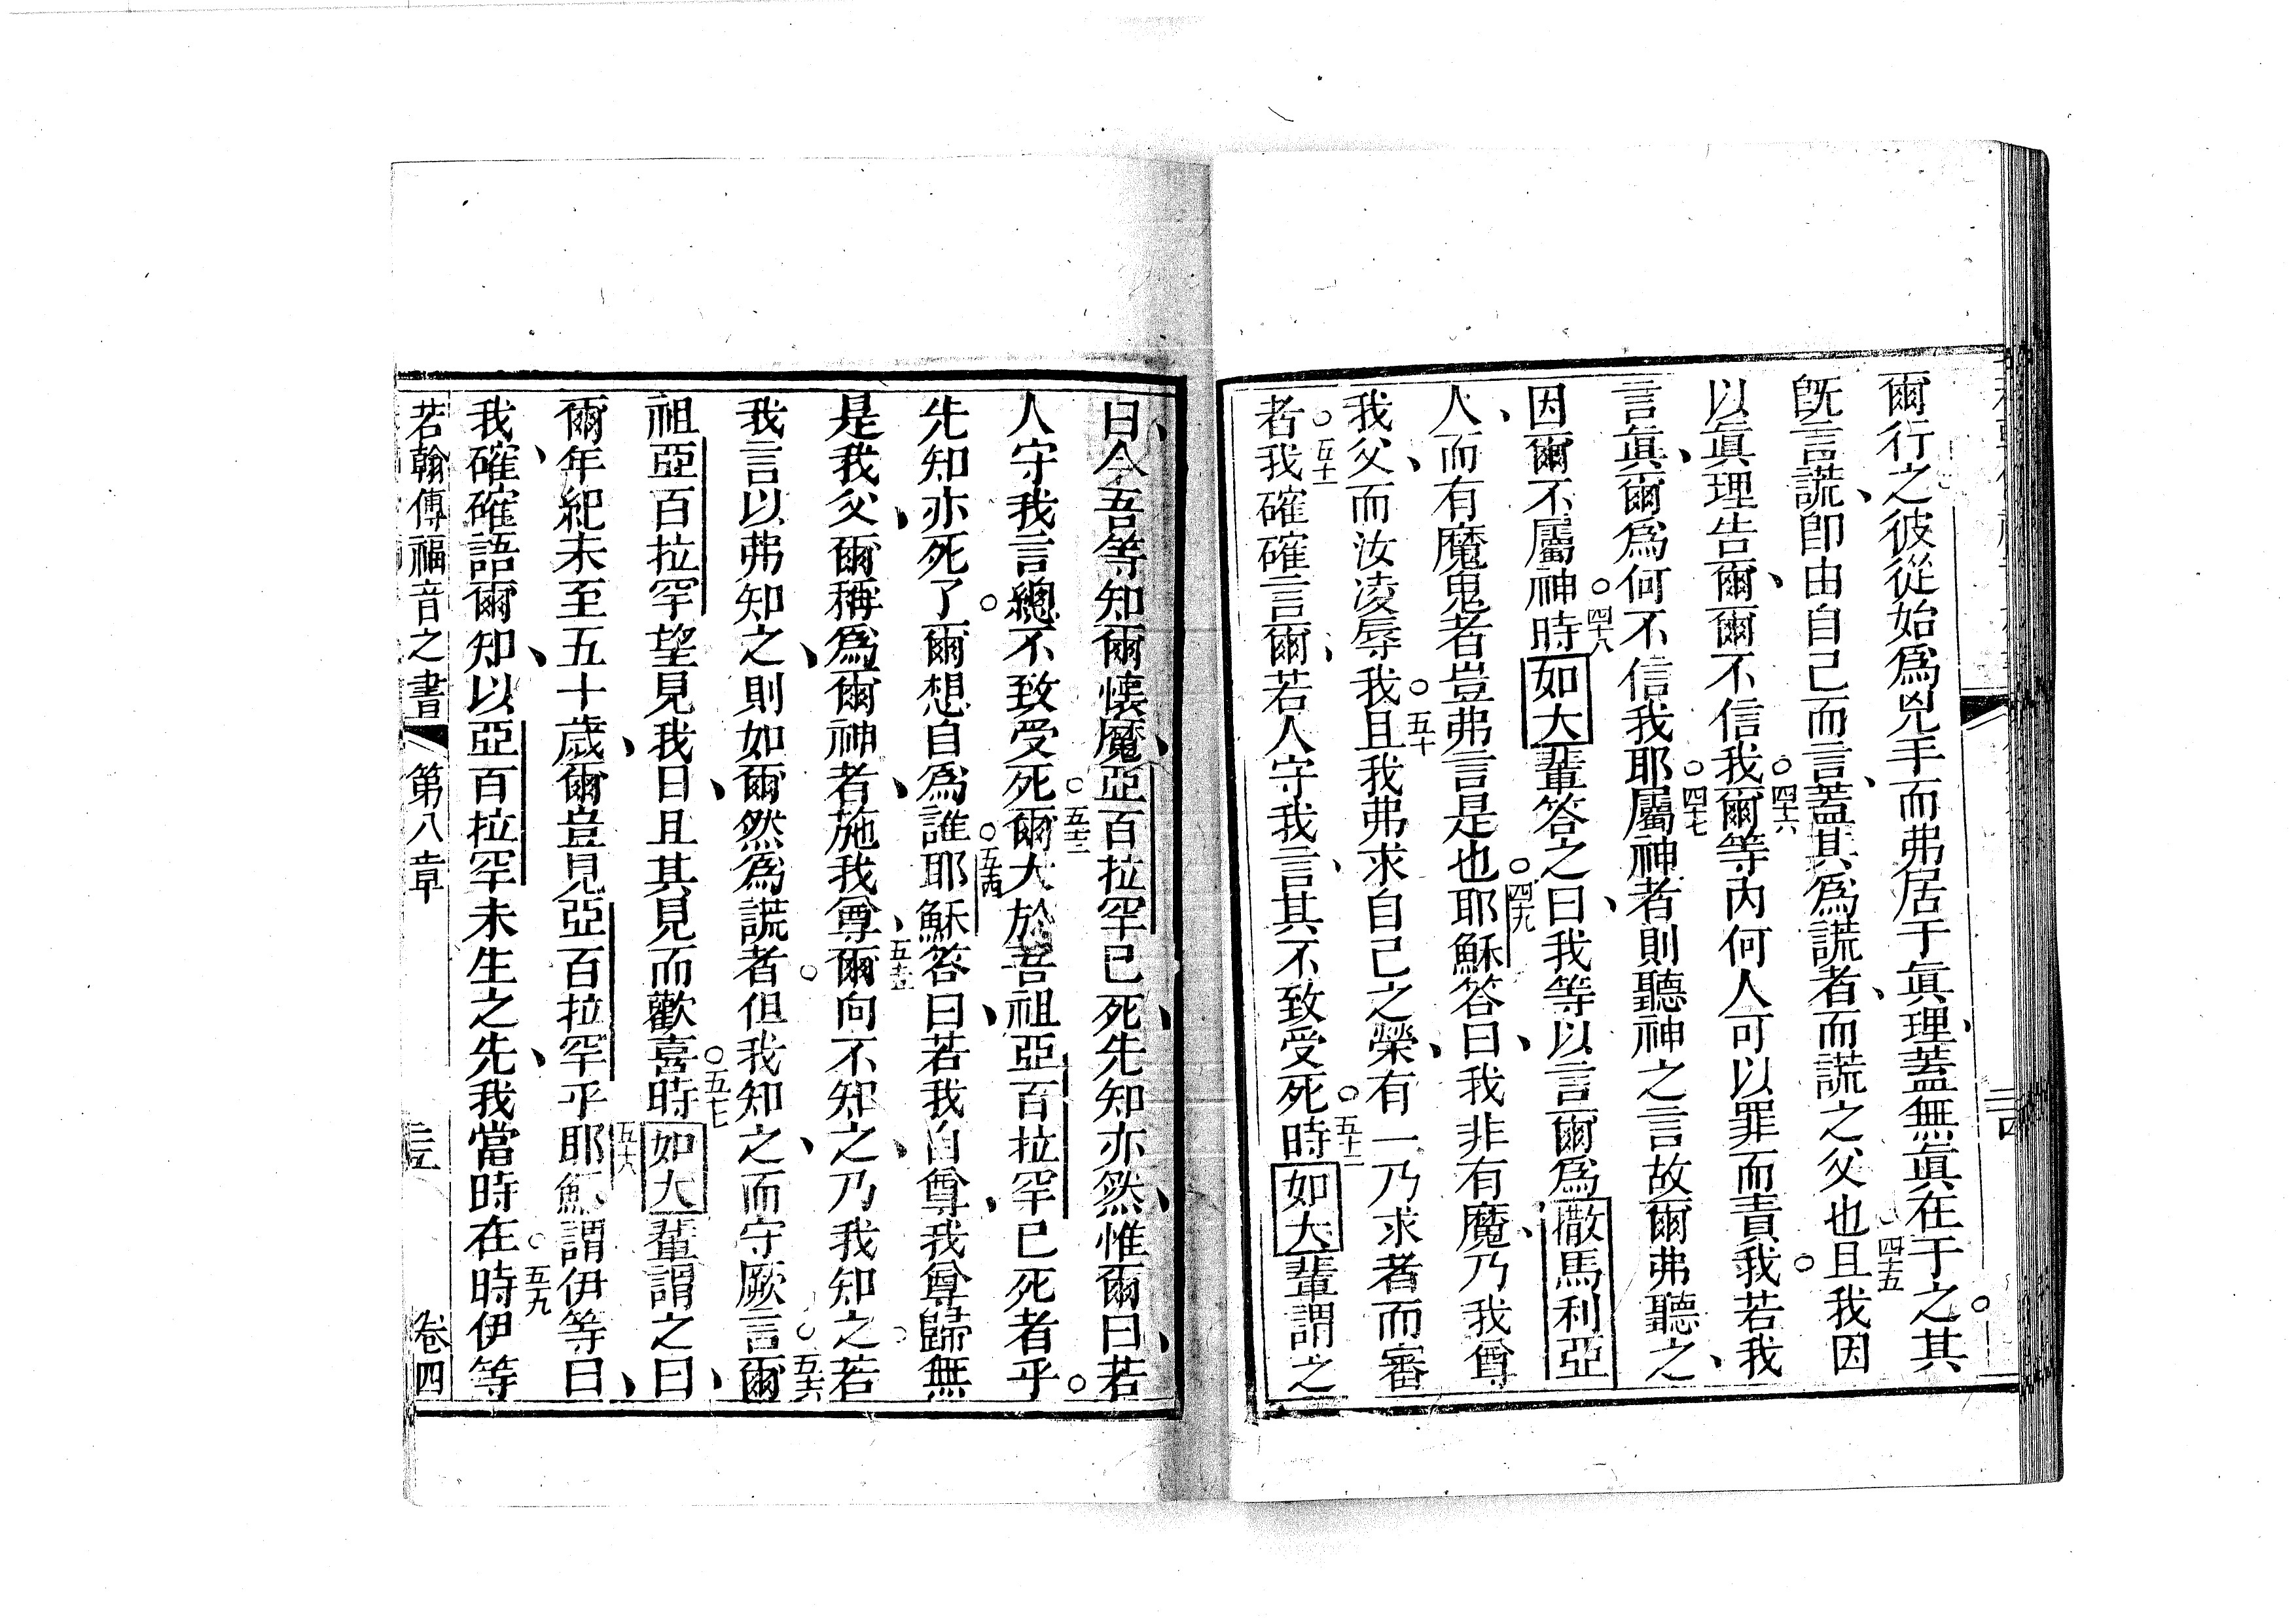 爾行之彼從始爲兇手而弗居于眞理、蓋無眞在于之其。
旣言謊、卽由自己而言、蓋其爲謊者、而謊之父也○四十五且我因
以眞理告爾、爾不信我○四十六爾等內何人可以罪而責我。若我
言眞、爾爲何不信我耶○四十七屬神者則聽神之言故爾弗聽之、
因爾不屬神時○四十八如大輩答之曰、我等以言爾爲撒馬利亞
人、而有魔鬼者豈弗言是也○四十九耶穌答曰、我非有魔、乃我尊
我父、而汝凌辱我○五十且我弗求自己之榮、有一乃求者而審
者○五十一我確確言爾、若人守我言、其不致受死時○五十二如大輩謂之
曰、今吾等知爾懷魔、亞百拉罕已死、先知亦然、惟爾曰、若
人守我言總不致受死○五十三爾大於吾祖亞百拉罕已死者乎。
先知亦死了。爾想自爲誰○五十四耶穌答曰、若我自尊、我尊歸無
是我父、爾稱爲爾神者、施我尊、五十五爾向不知之、乃我知之。若
我言以弗知之、則如爾然爲謊者。但我知之、而守厥言○五十六爾
祖亞百拉罕望見我日、且其見而歡喜時○五十七如大輩謂之曰、
爾年紀未至五十歲、爾豈見亞百拉罕乎五十八耶穌謂伊等曰、
我、確確語爾知、以亞百拉罕未生之先、我當時在時○五十九伊等
若翰傳福音之書 第八章 卷四